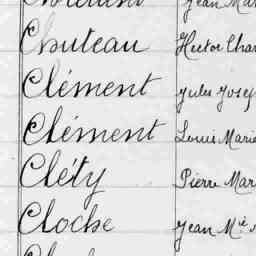 Chuteau Hector Char
Clément Jules Josep
Clément Louis Marie
Cléty Pierre Mar
Cloche Jean Mie